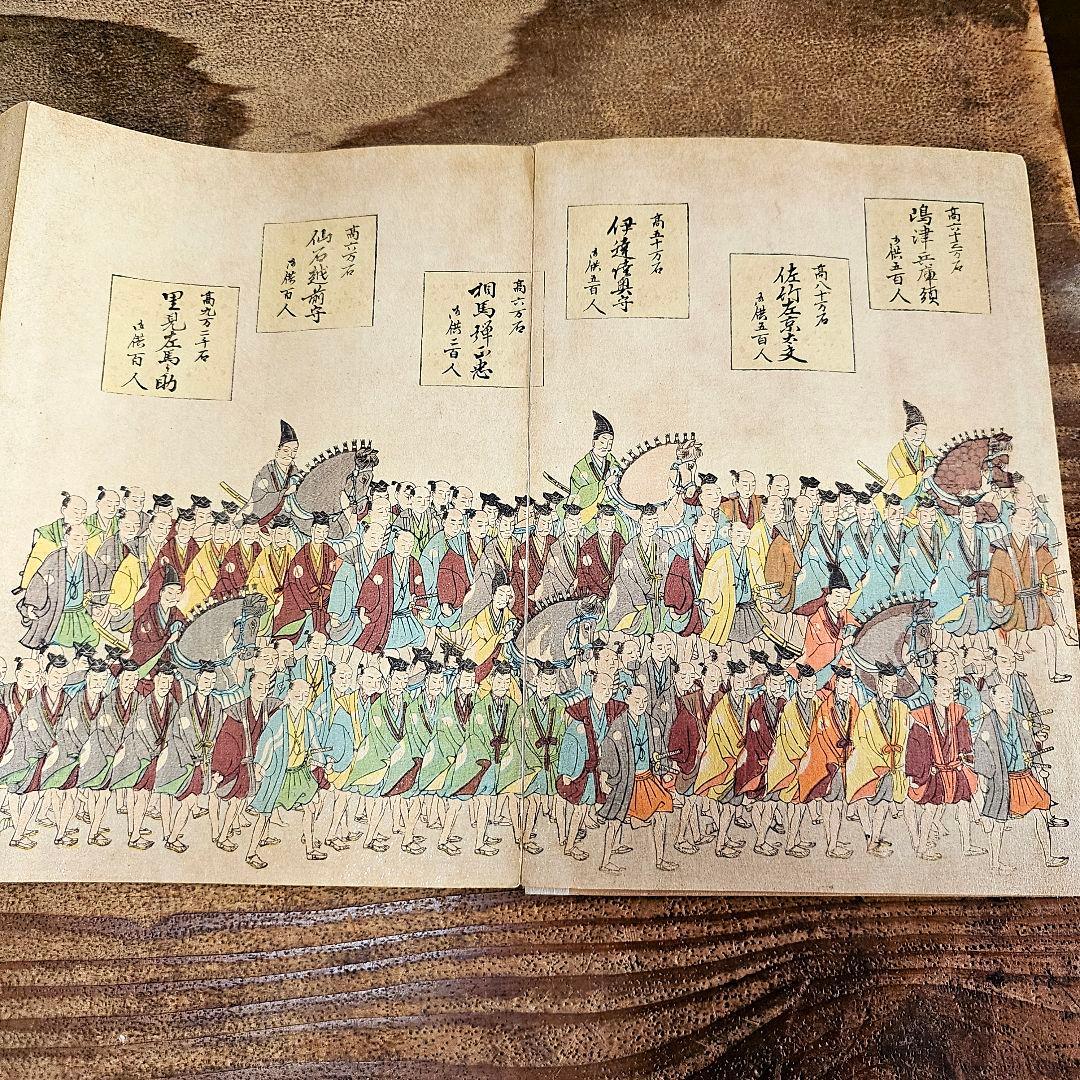 高六十三万石
嶋津兵庫頭
御供五百人
高八十万石
佐竹左京大夫
御供五百人
高五十万石
伊達陸奥守
御供五百人
高六万石
相馬弾正忠
御供二百人
高六万石
仙石越前守
御供百人
高九万二千石
里見左馬之助
御供百人